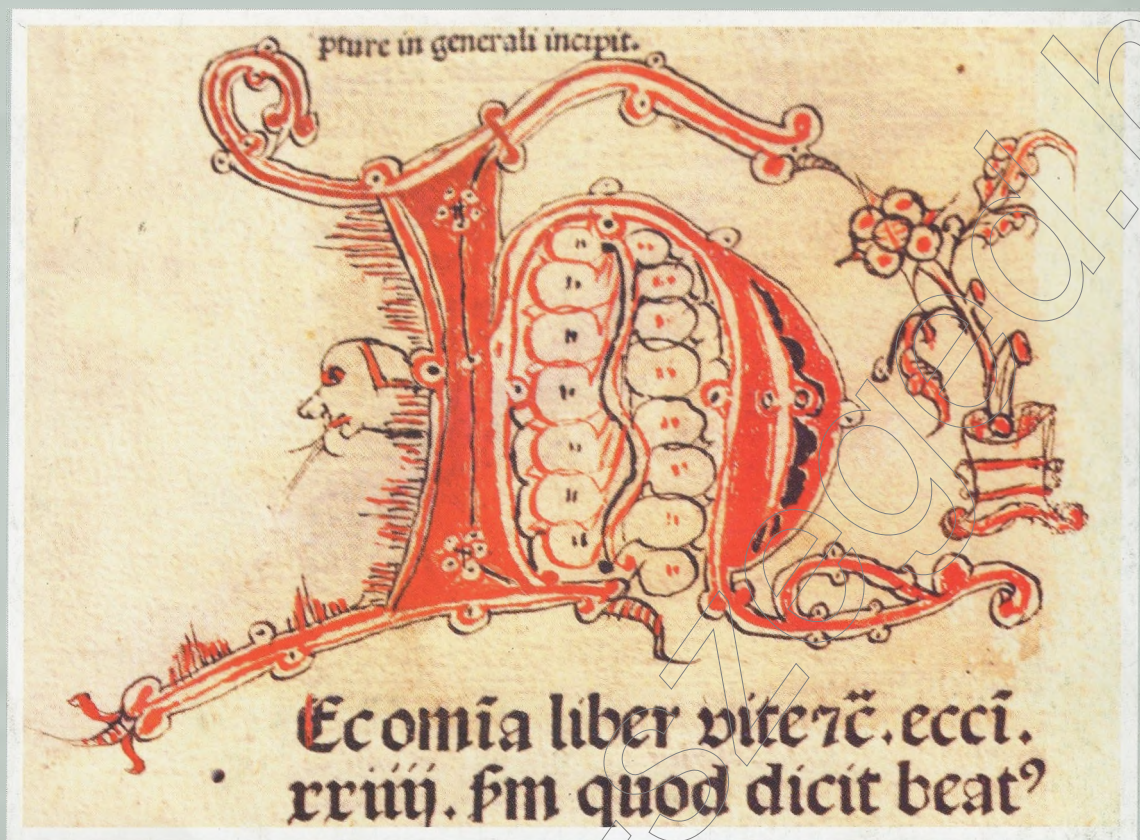 pture in generali incipit.
Ec om̄ia liber vite ⁊c̄. eccī.
xxiiij. s̄m quod dicit beatꝰ